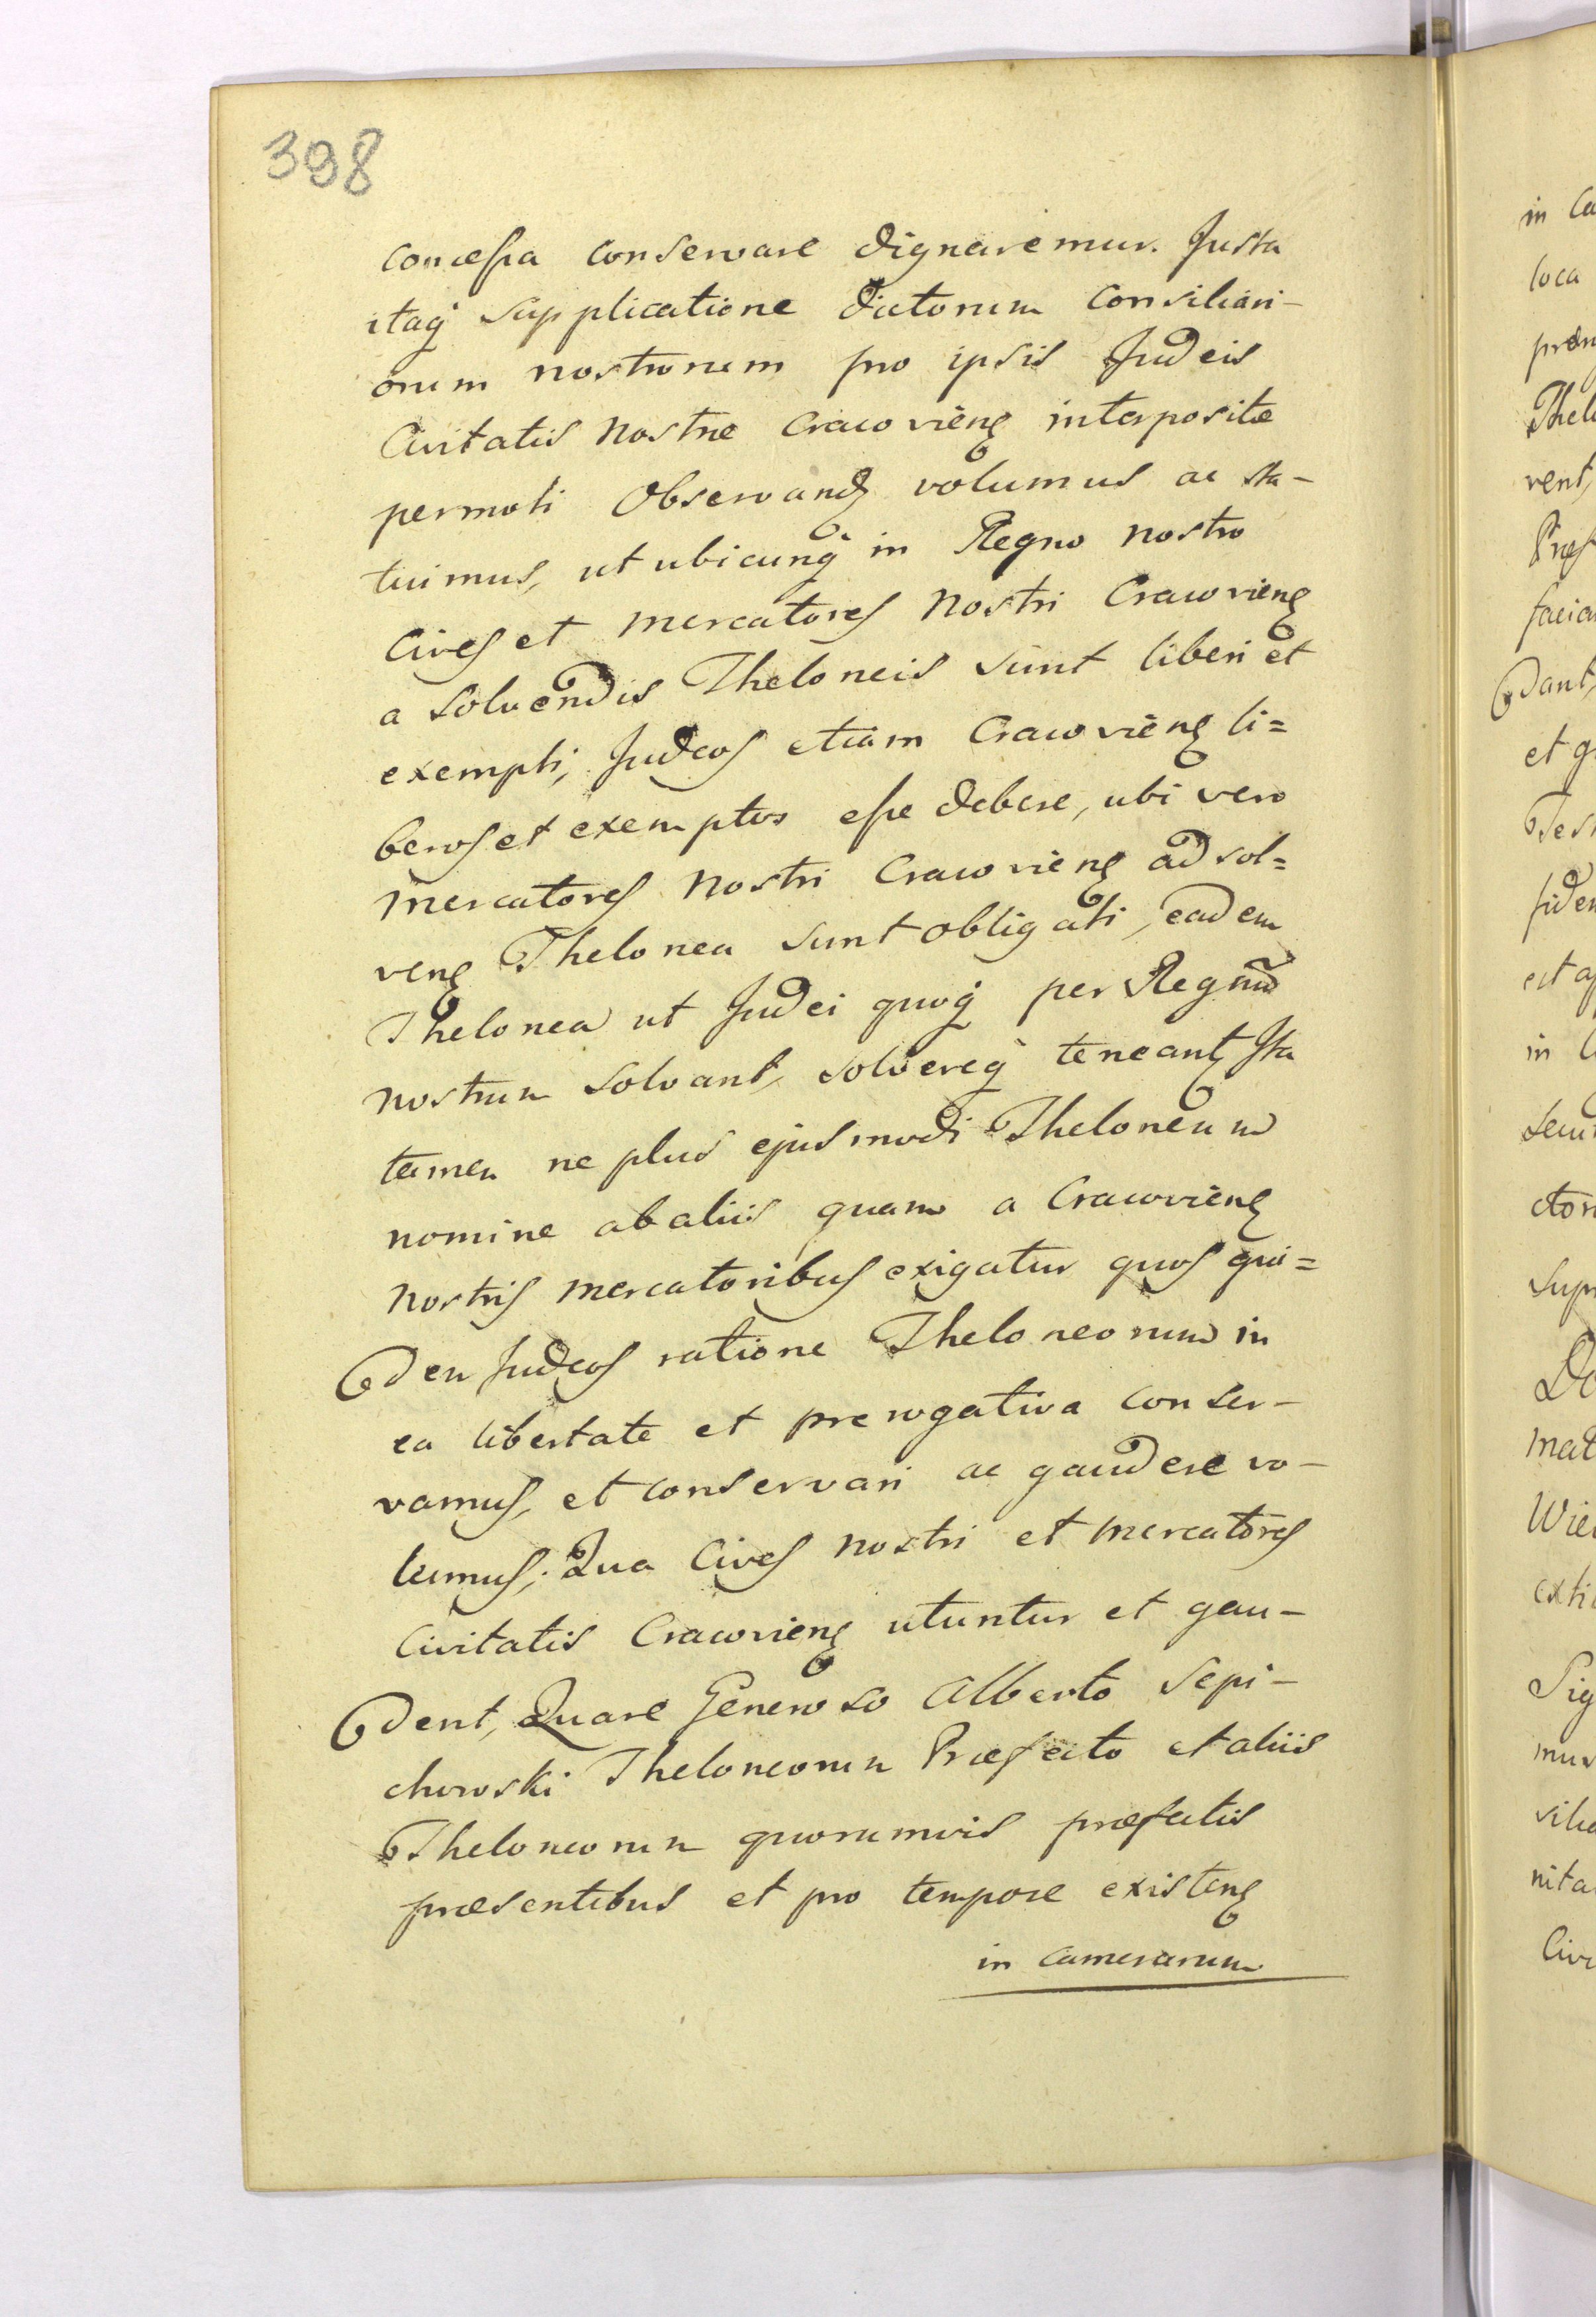 398
concessa conservare dignaremur. Justa
itaq supplicatione dictorum consiliari-
orum nostrorum pro ipsis Judeis
Civitatis Nostre Cracovieng interposite
permoti Observandz volumus ac sta-
tuimus, ut ubicunq in Regno nostro
Cives et mercatores Nostri Cracovieng
a solvendis Theloneis sunt liberi et
exempti, Judeos etiam Cracovieng li=
beros et exemptos esse debere, ubi vero
mercatores Nostri Cracovieng ad sol=
veng Thelonea sunt obligati, eadem
Thelonea ut Judei quoq per Regnũ
nostrum solvant, solvereq teneantz Ita
tamen ne plus ejusmodi Theloneum
nomine ab aliis quam a Cracovieng
nostris mercatoribus exigatur quos qui=
dem Judeos ratione Theloneorum in
ea libertate et prerogativa conser-
vamus, et conservari ac gaudere vo-
lumus; Qua Cives nostri et mercatores
Civitatis Cracovieng utuntur et gau-
dent, Quare Generoso Alberto Sepi-
chowski Theloneorum Præfecto et aliis
Theloneorum quorumvis præfectis
præsentibus et pro tempore existeng
in Camerarum
in Ca
loca
præm
Thelo
vent,
Præf
facia
dant,
et g
Tes
fidem
est ap
in C
secu
ctor
Supr
Do
mat
Wie
exti
Sig
mus
silia
nita
Civ